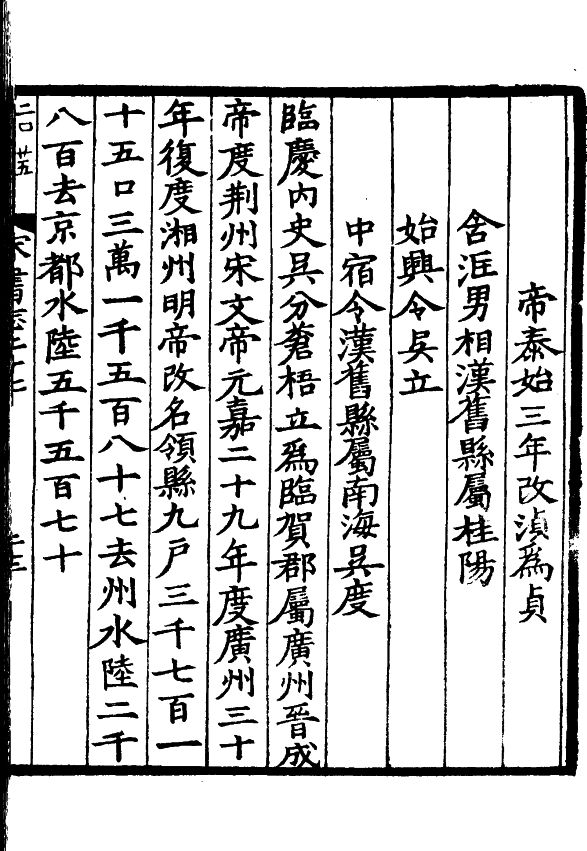 帝泰始三年改湞爲貞
含洭男相漢舊縣屬桂陽
始興令吳立
中宿令漢舊縣屬南海吳度
臨慶內史吳分蒼梧立爲臨賀郡屬廣州晉成
帝度荆州宋文帝元嘉二十九年度廣州三十
年復度湘州明帝改名領縣九戶三千七百一
十五口三萬一千五百八十七去州水陸二千
八百去京都水陸五千五百七十
宋書志二十七